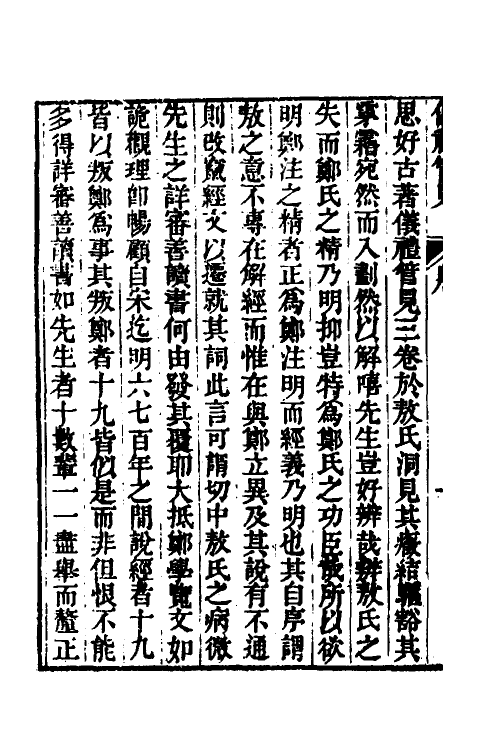 思好古著儀禮管見三卷於敖氏洞見其癥結驅豁其
雺霧宛然而入劃然以解嘻先生豈好辨哉辨敖氏之
失而鄭氏之精乃明抑豈特為鄭氏之功臣哉所以欲
明鄭注之精者正為鄭注明而經義乃明也其自序謂
敖之意不專在解經而惟在與鄭立異及其說有不通
則改竄經文以遷就其詞此言可謂切中敖氏之病微
先生之詳審善讀書何由發其覆耶大抵鄭學覽文如
詭觀理卽暢顧自宋迄明六七百年之間說經者十九
皆以叛鄭為事其叛鄭者十九皆似是而非但恨不能
多得詳審善讀書如先生者十數輩一一盡舉而釐正